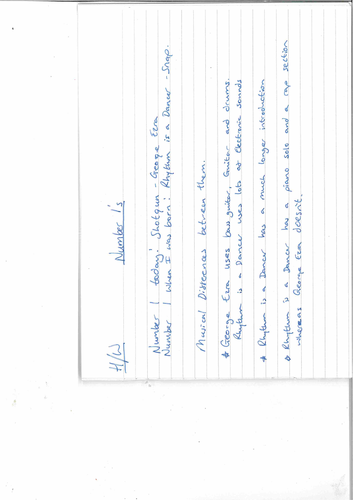 H/W
Number 1's
Number 1 today: Shotgun - George Ezra
Number 1 when I was born: Rhythm is a Dancer - Snap.
Musical Differences between them.
* George Ezra uses bass guitar, Guitar and drums.
Rhythm is a Dancer uses lots of electronic sounds
* Rhythm is a Dancer has a much longer introduction
* Rhythm is a Dancer has a piano solo and a rap section
whereas George Ezra doesn't.